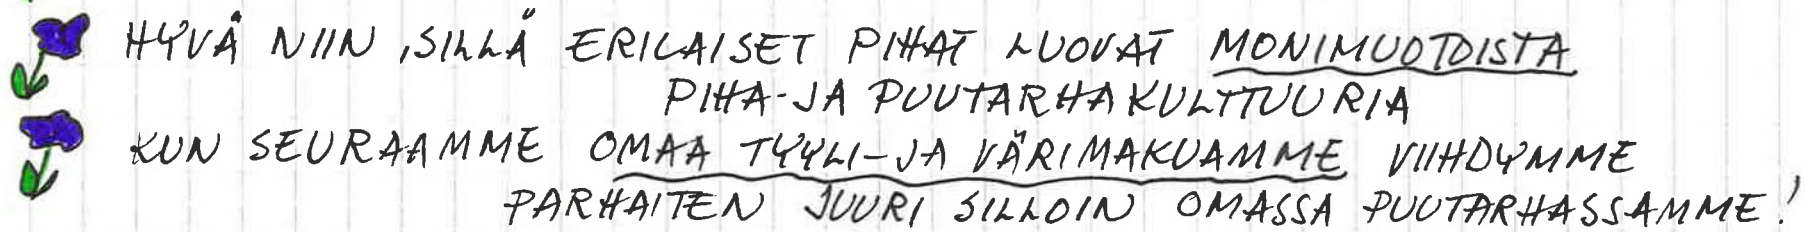 HYVÄ NIIN ,SILLÄ ERILAISET PIHAT LUOVAT MONIMUOTOISTA
PIHA-JA PUUTARHAKULTTUURIA
KUN SEURAAMME OMAA TYYLI-JA VÄRIMAKUAMME VIIHDYMME
PARHAITEN JUURI SILLOIN OMASSA PUUTARHASSAMME!